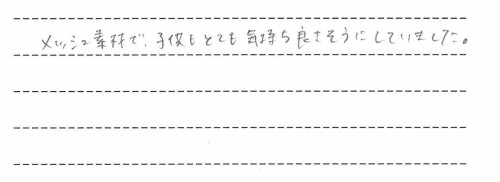 メッシュ素材で、子供もとても気持ち良さそうにしていました。